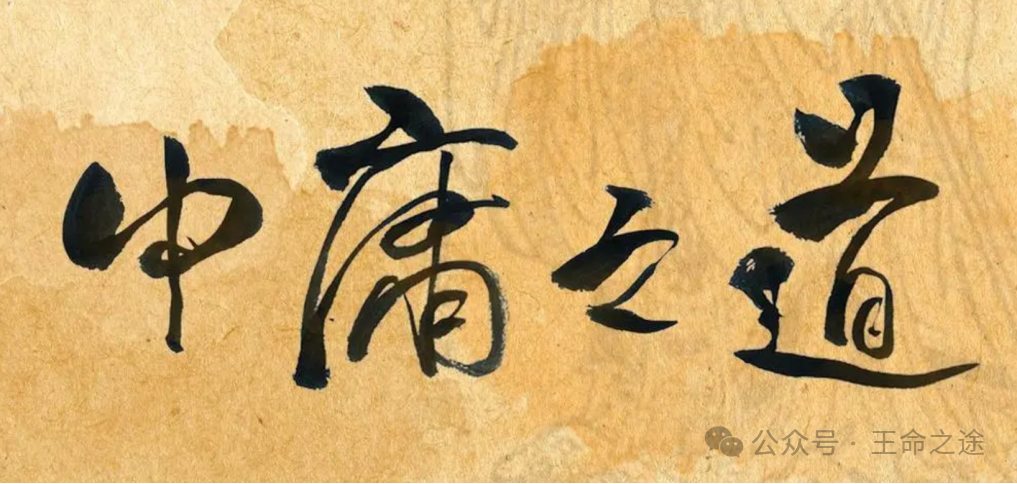 中庸之道
公众号·王命之途